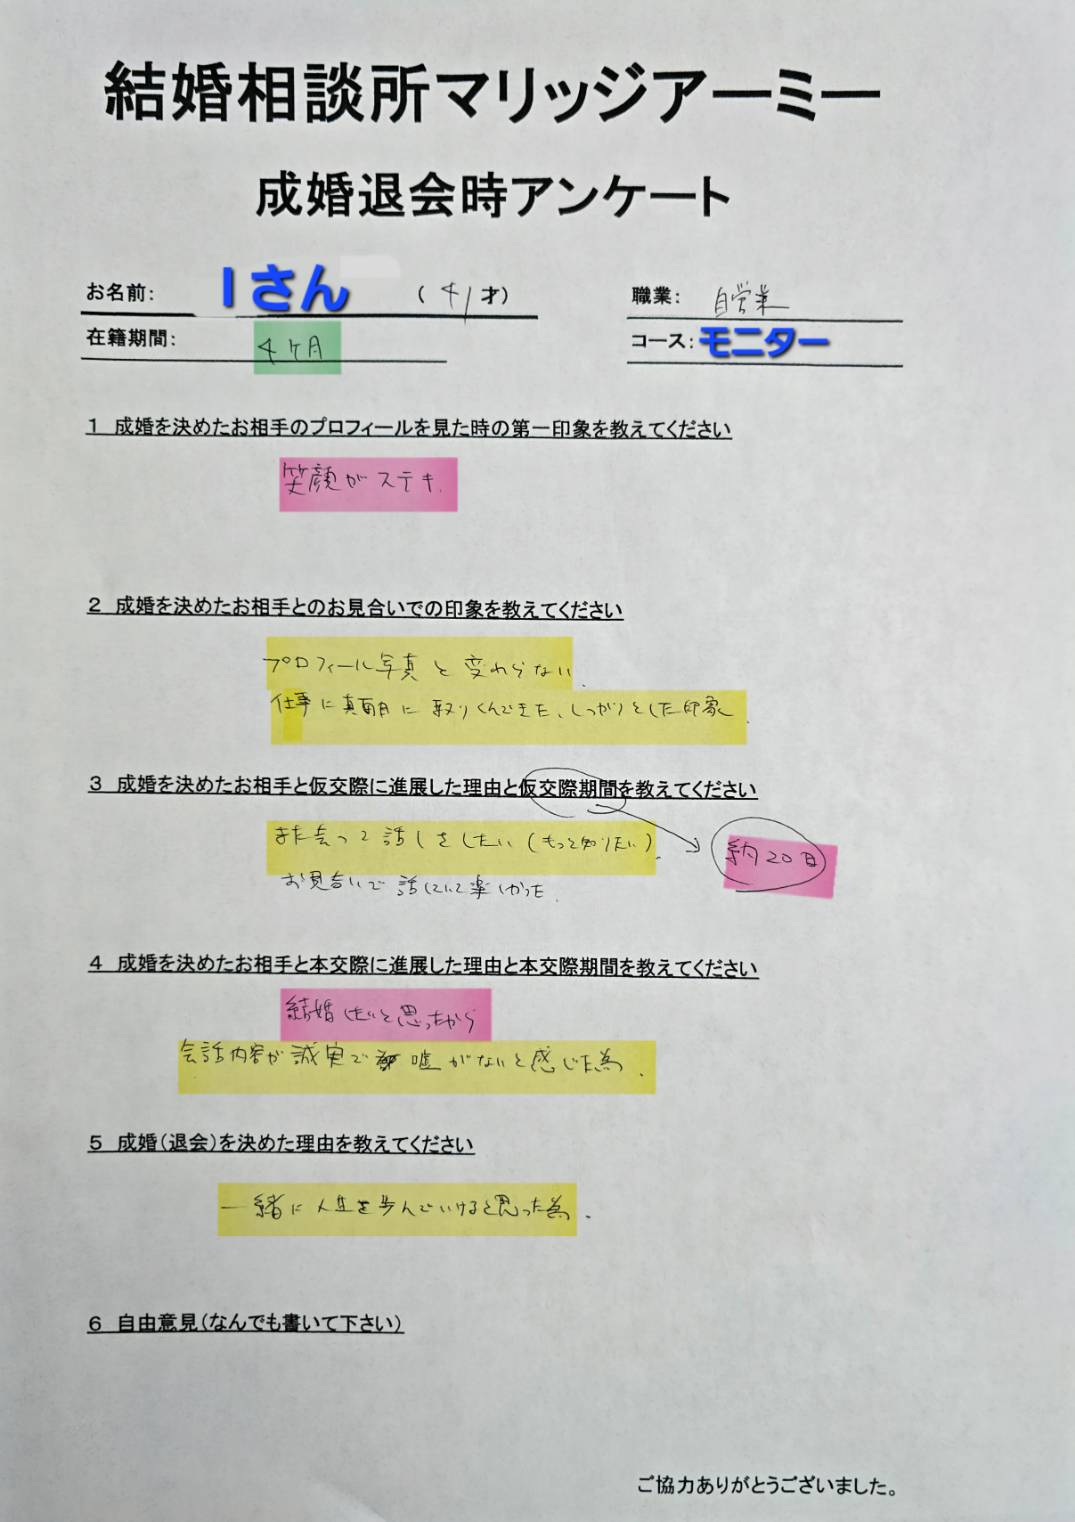 結婚相談所マリッジアーミー
成婚退会時アンケート
お名前: Iさん (41才) 職業: 自営業
在籍期間: 4ヶ月 コース: モニター
1 成婚を決めたお相手のプロフィールを見た時の第一印象を教えてください
笑顔がステキ.
2 成婚を決めたお相手とのお見合いでの印象を教えてください
プロフィール写真と変わらない.
仕事に真面目に取りくんできた、しっかりとした印象.
3 成婚を決めたお相手と仮交際に進展した理由と仮交際期間を教えてください
また会って話しをしたい(もっと知りたい).
約20日
お見合いで話していて楽しかった.
4 成婚を決めたお相手と本交際に進展した理由と本交際期間を教えてください
結婚したいと思ったから
会話内容が誠実で嘘がないと感じた為.
5 成婚(退会)を決めた理由を教えてください
一緒に人生を歩んでいけると思った為.
6 自由意見(なんでも書いて下さい)
ご協力ありがとうございました。